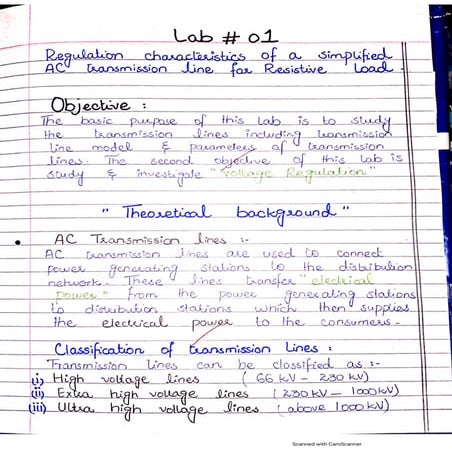 Lab # 01
Regulation characteristics of a simplified
AC transmission line for Resistive Load.
Objective :
The basic purpose of this lab is to study
the transmission lines including transmission
line model & parameters of transmission
lines. The second objective of this lab is
study & investigate "Voltage Regulation"
" Theoretical background "
• AC Transmission lines :-
AC transmission lines are used to connect
power generating stations to the distribution
network. These lines transfer "electrical
power" from the power generating stations
to distribution stations which then supplies
the electrical power to the consumers.
Classification of transmission Lines :
Transmission Lines can be classified as :-
(i) High voltage lines (66 kV - 230 kV)
(ii) Extra high voltage lines (230 kV - 1000 kV)
(iii) Ultra high voltage lines (above 1000 kV)
Scanned with CamScanner